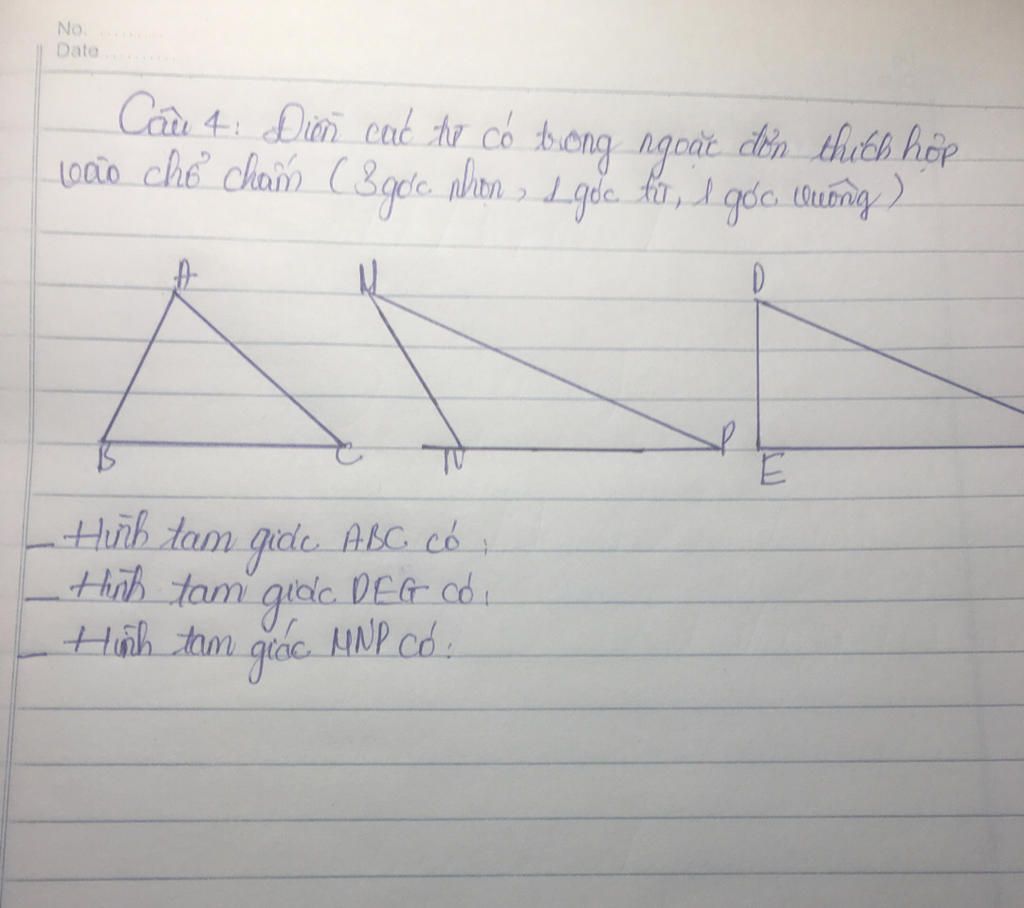 No.
Date
Câu 4: Điền các từ có trong ngoặc đơn thích hợp
vào chổ chấm (3 góc nhọn, 1 góc tù, 1 góc vuông)
A M D
B C N P E
- Hình tam giác ABC có:
- Hình tam giác DEG có:
- Hình tam giác MNP có: